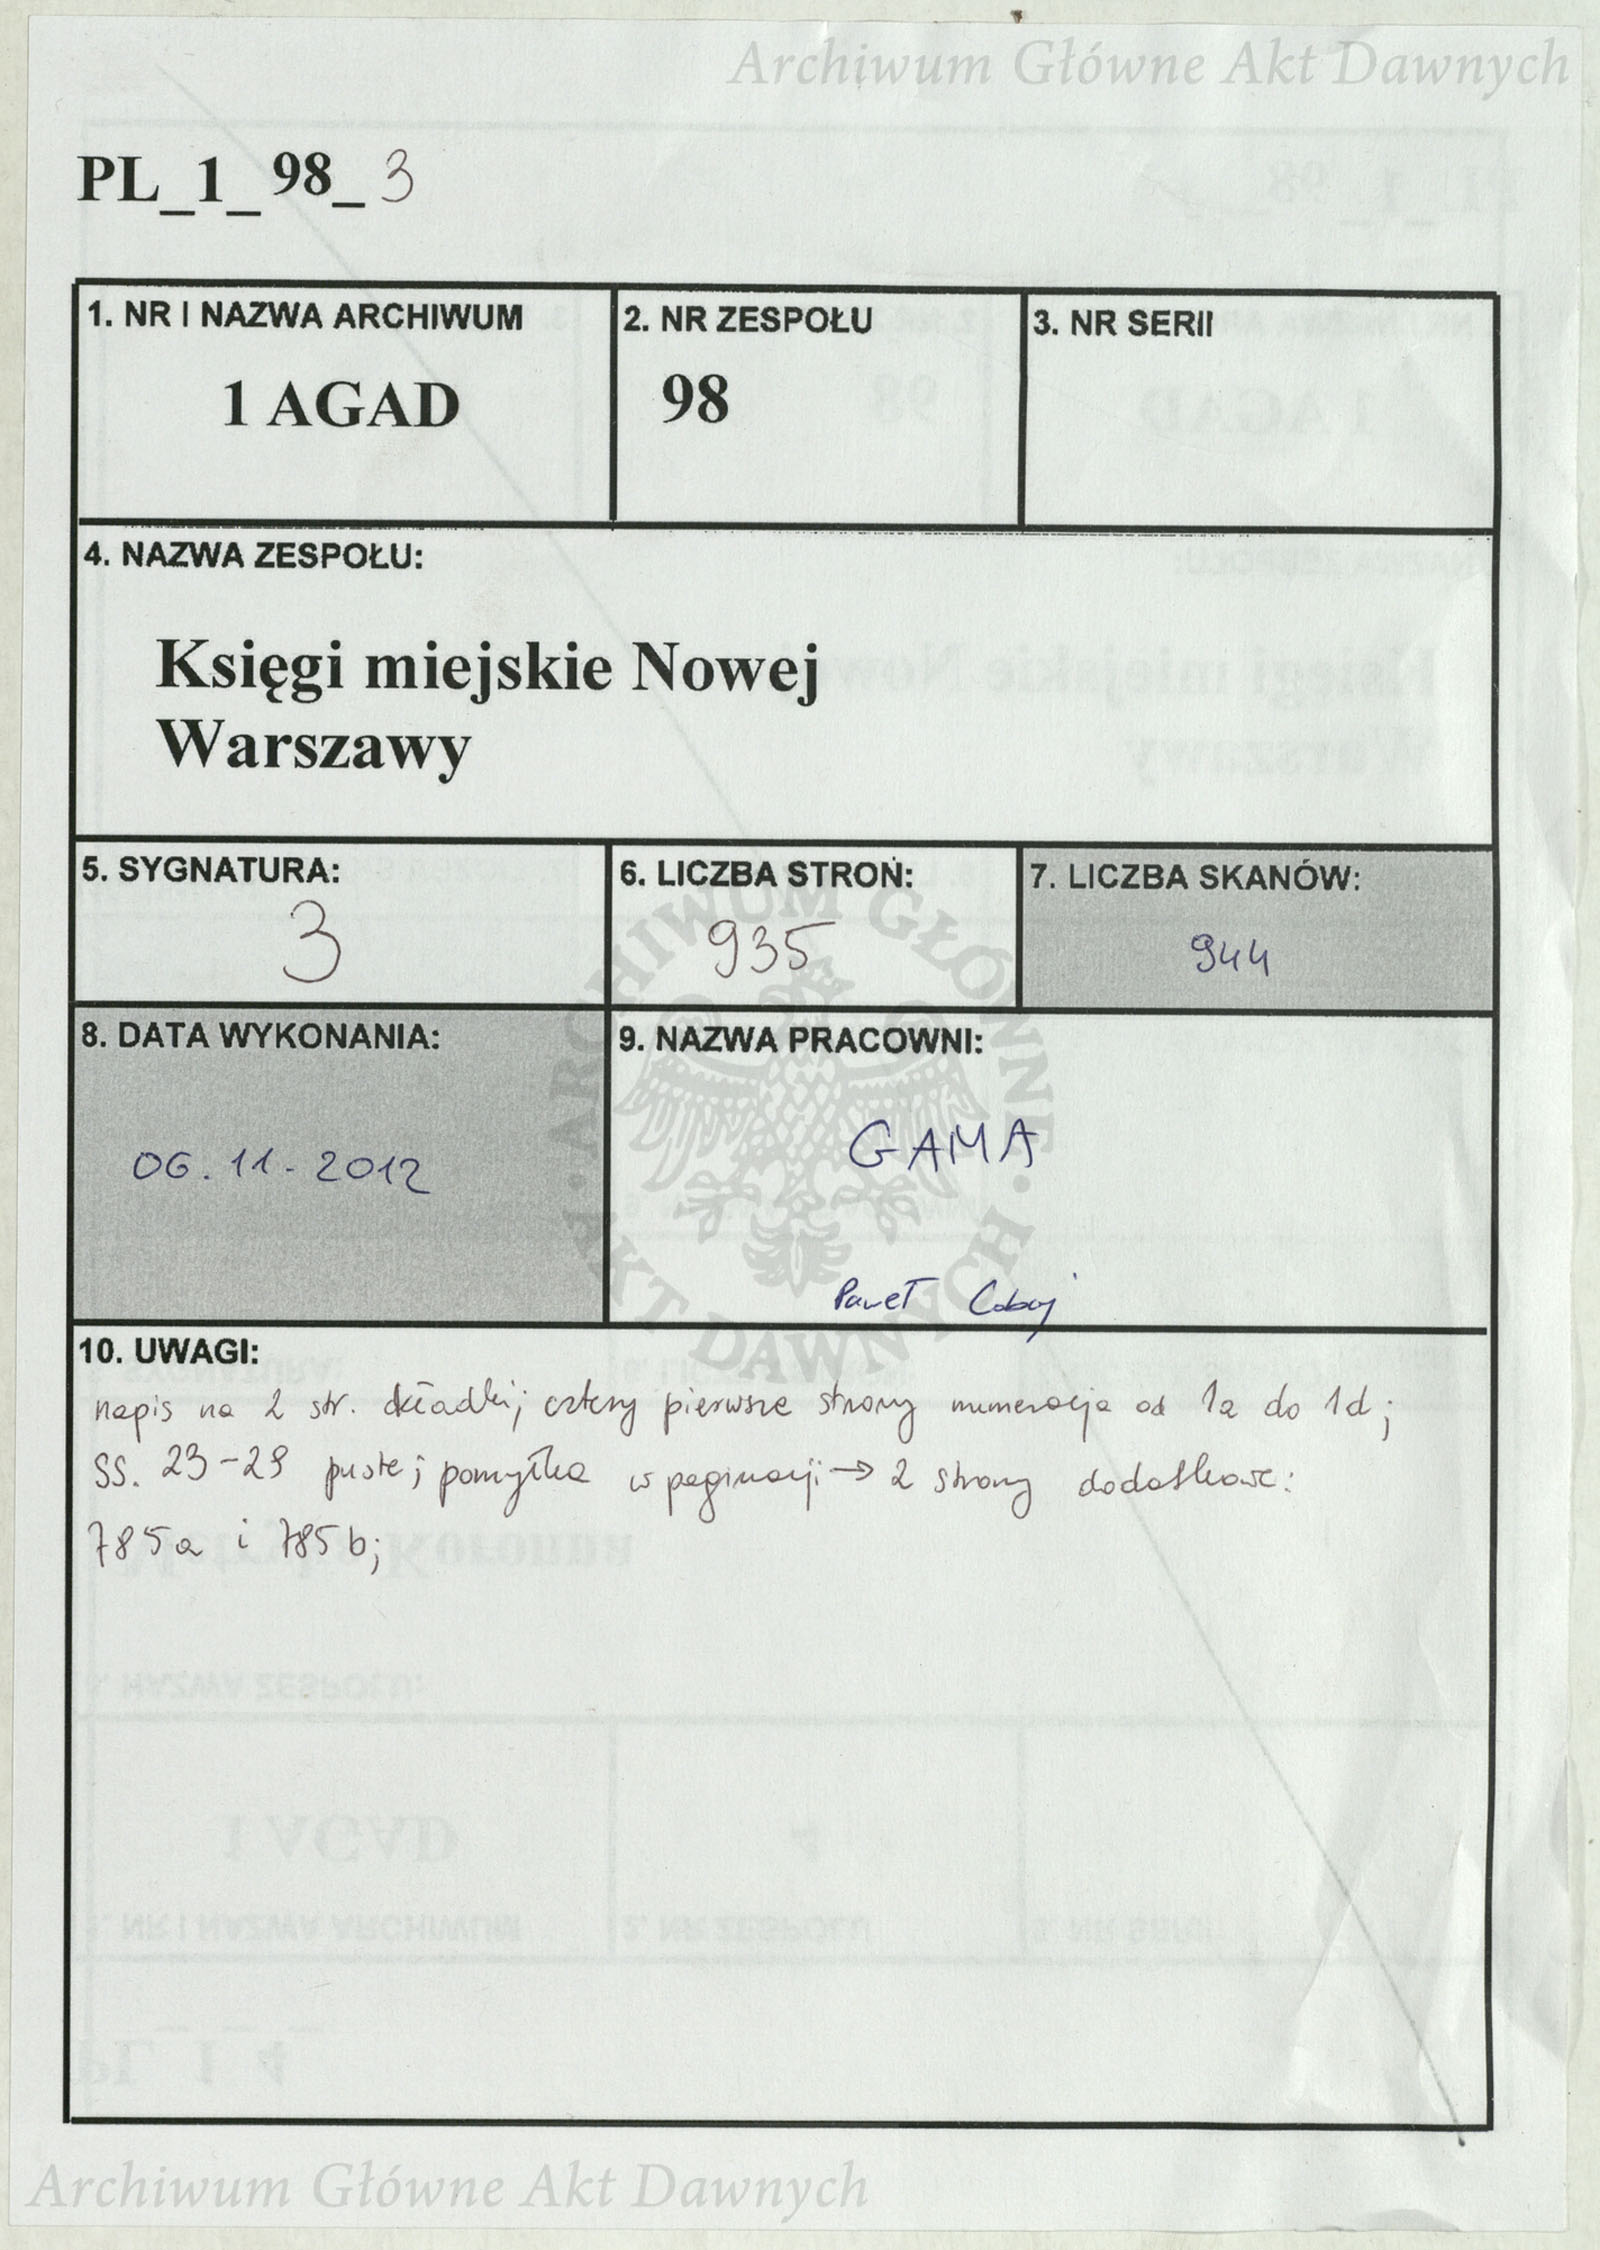 Archiwum Główne Akt Dawnych
PL_1_98_3
1. NR I NAZWA ARCHIWUM
1 AGAD
2. NR ZESPOŁU
98
3. NR SERII
4. NAZWA ZESPOŁU:
Księgi miejskie Nowej
Warszawy
5. SYGNATURA:
3
6. LICZBA STRON:
935
7. LICZBA SKANÓW:
944
8. DATA WYKONANIA:
06.11.2012
9. NAZWA PRACOWNI:
GAMA
Paweł
ARCHIWUM GŁÓWNE · AKT DAWNYCH ·
10. UWAGI:
napis na 2 str. okładki; cztery pierwsze strony numeracja od 1a do 1d;
ss. 23-29 puste; pomyłka w paginacji → 2 strony dodatkowe:
785a i 785b;
Archiwum Główne Akt Dawnych